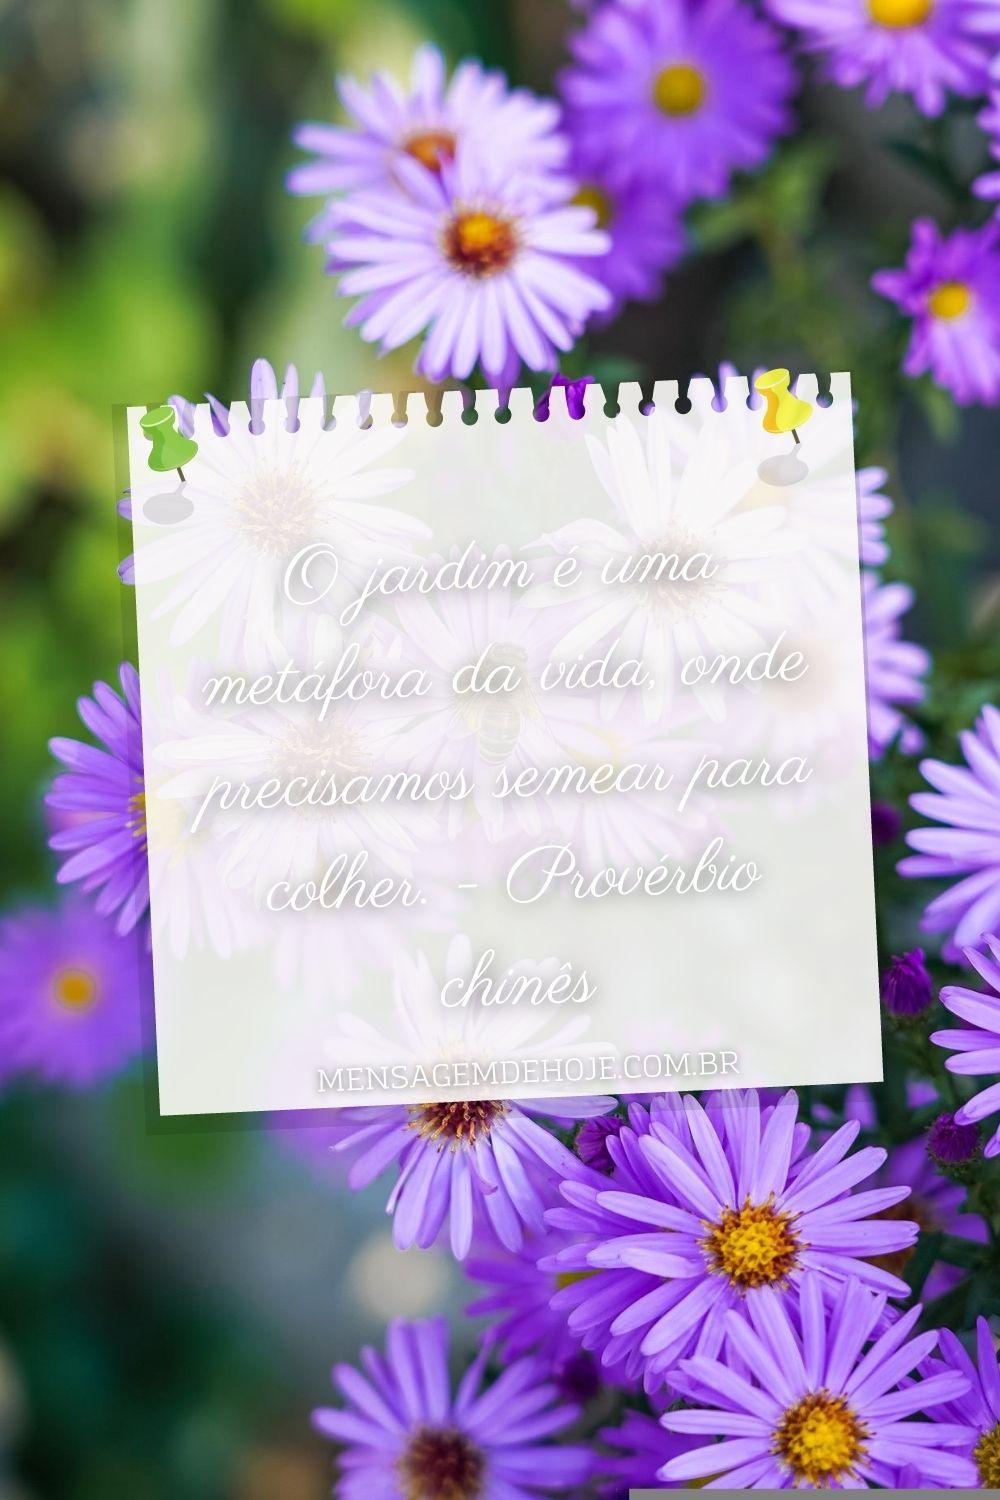 O jardim é uma
metáfora da vida, onde
precisamos semear para
colher. - Provérbio
chinês
MENSAGEMDEHOJE.COM.BR